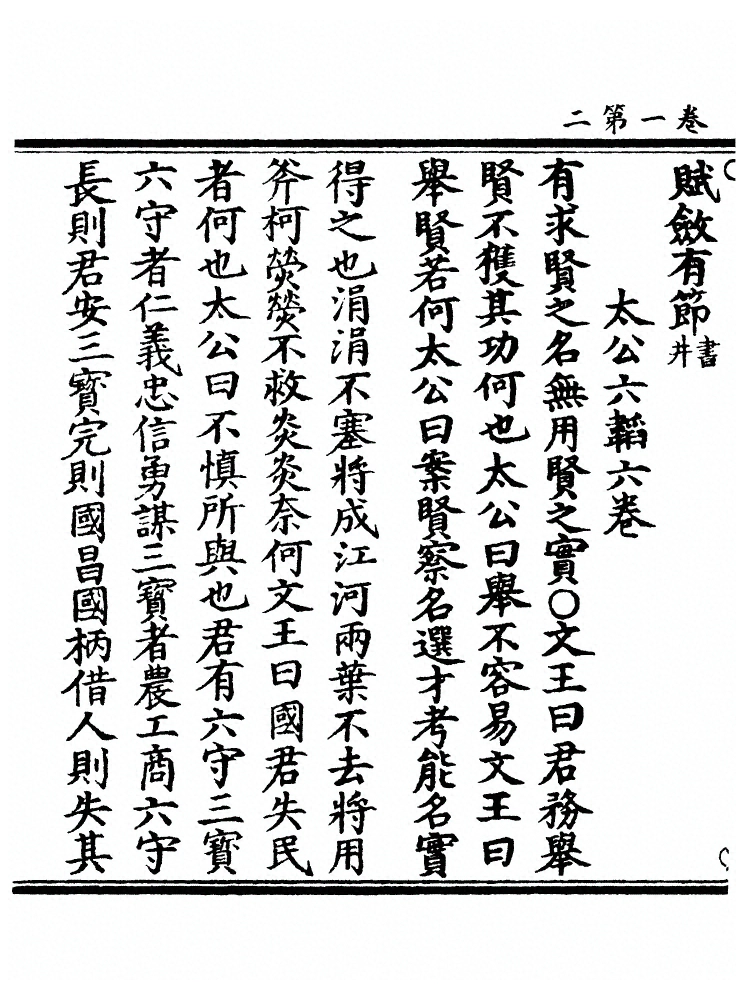 卷一第二
賦斂有節書井
太公六韜六卷
有求賢之名無用賢之實○文王曰君務舉
賢不獲其功何也太公曰舉不容易文王曰
舉賢若何太公曰案賢察名選才考能名實
得之也涓涓不塞將成江河兩葉不去將用
斧柯熒熒不救炎炎奈何文王曰國君失民
者何也太公曰不慎所與也君有六守三寶
六守者仁義忠信勇謀三寶者農工商六守
長則君安三寶完則國昌國柄借人則失其